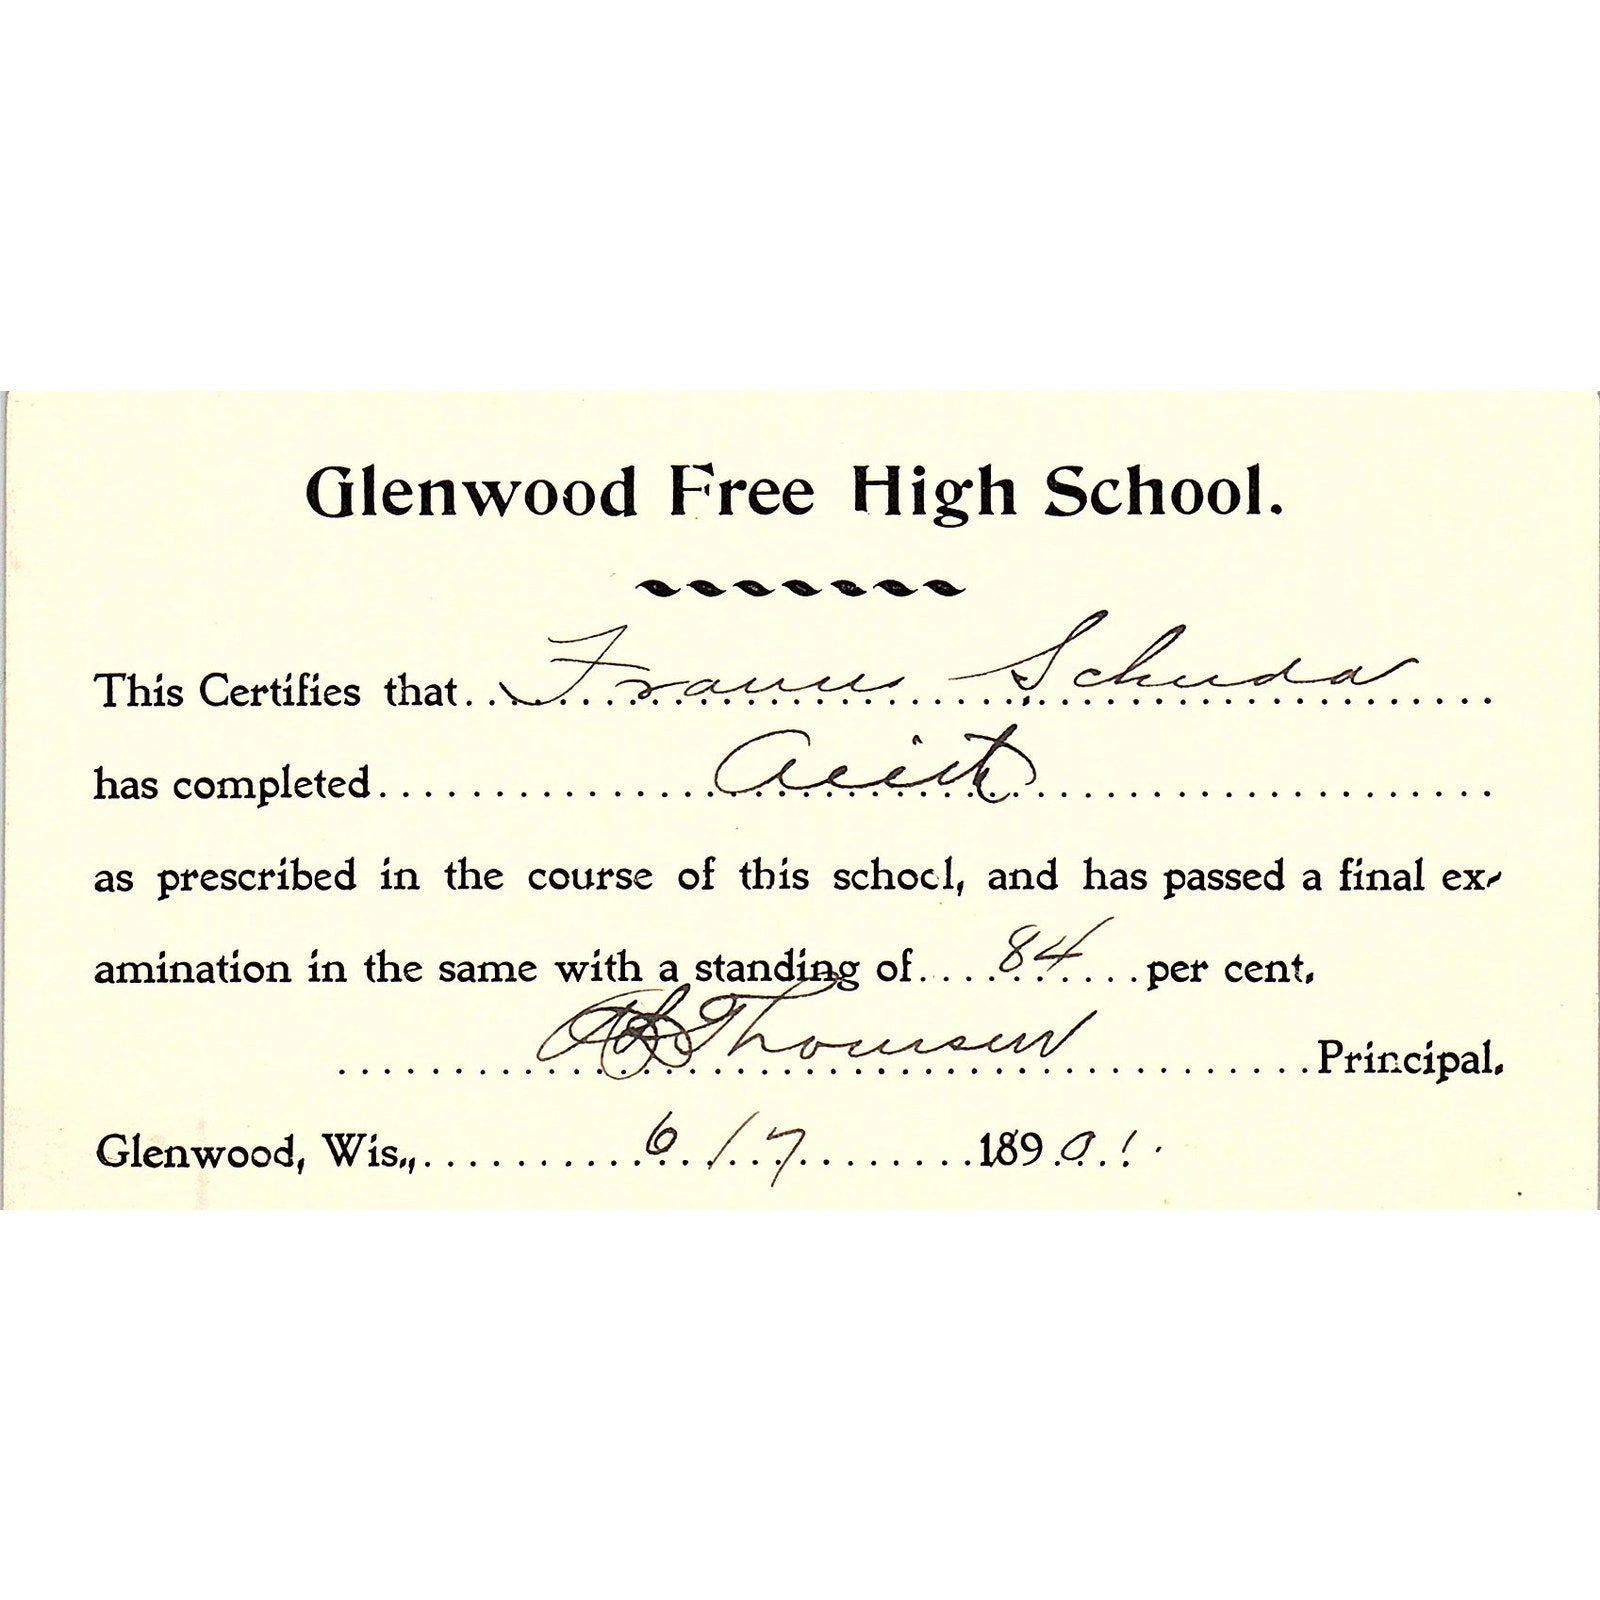 Glenwood Free High School.
This Certifies that Francis Schuda
has completed Arith
as prescribed in the course of this school, and has passed a final ex-
amination in the same with a standing of 84 per cent.
Thomsen Principal.
Glenwood, Wis., 6/17 1890 1.